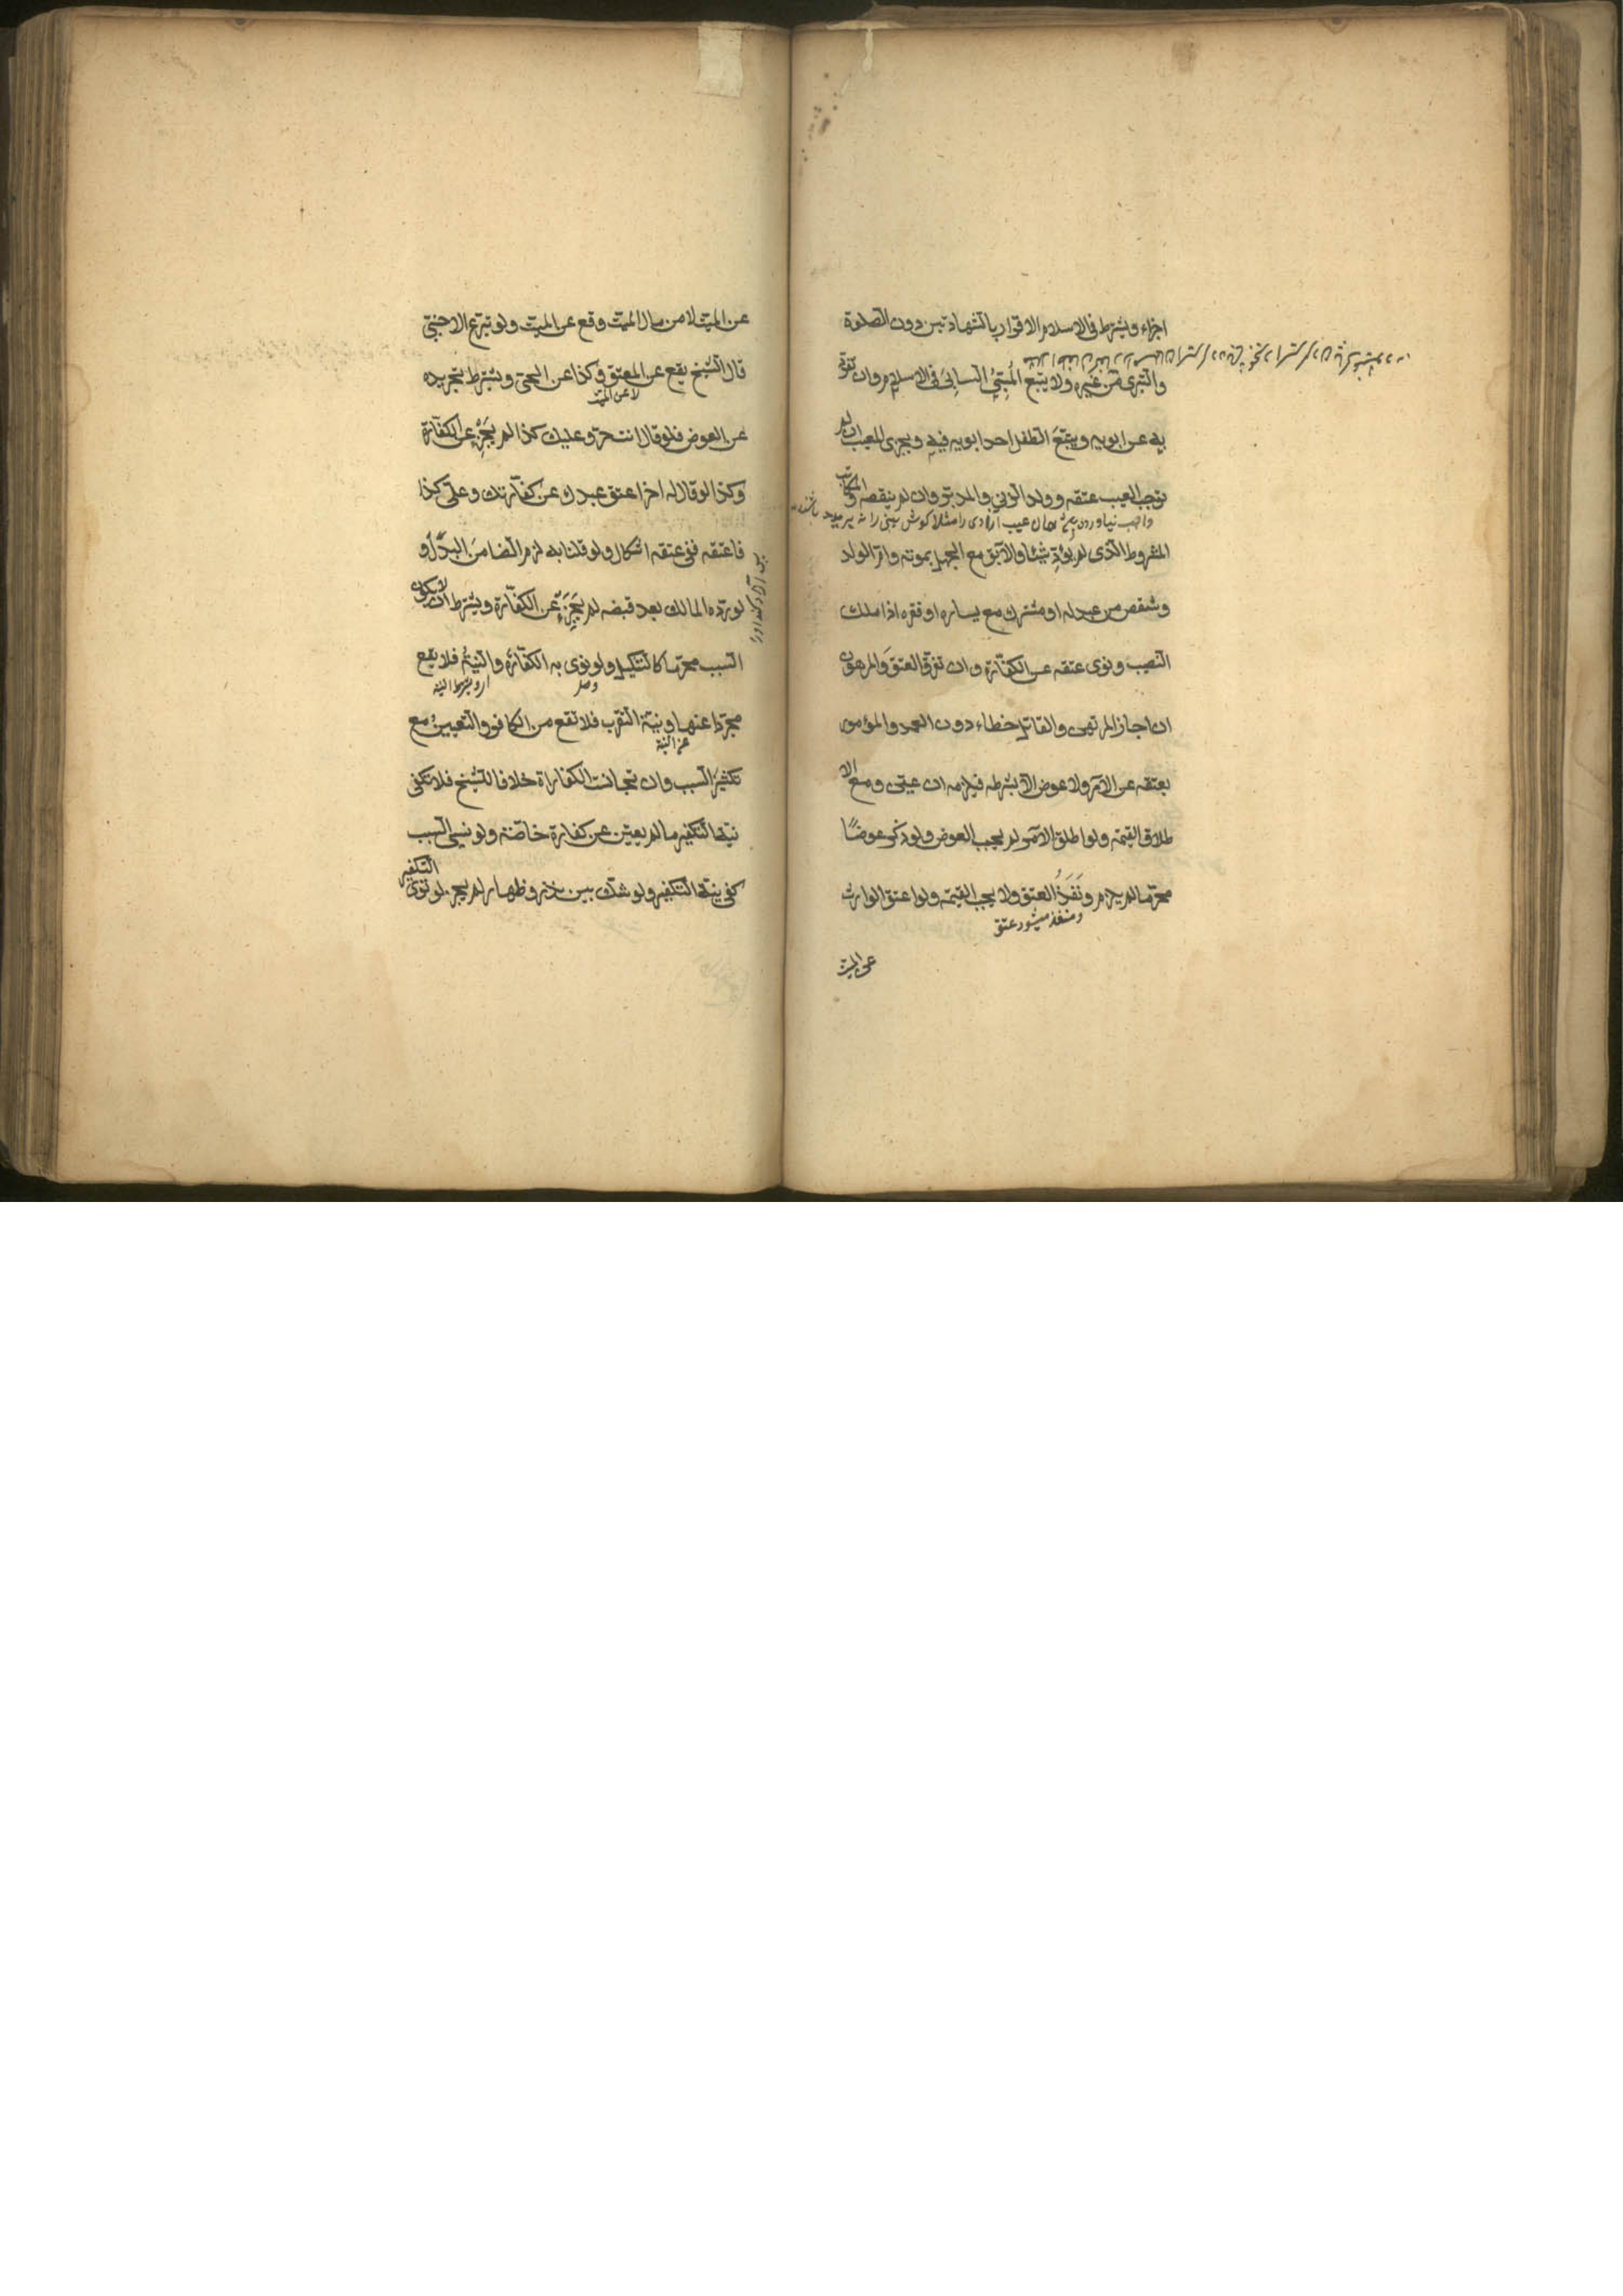 اجزاء ويشترط فى الاسلام الاقرار بالشهادتين دون الصلوة
والتبرى من غيره ولا يتبع المسبىّ السابىَ فى الاسلام وان تفرّد
به عن ابويه ويتبع الطفل احد ابويه فيه ويجزى المعيب ان لم
يوجب العيب عتقه وولد الزنى والمدبّر وان لم ينقضه والمكاتب
واجب نياورد عيب ازادى را مثلا كوش بينى را
المشروط الّذى لم يؤدّ شيئا والآبق مع الجهل بموته وامّ الولد
وشقص من عبد له او مشترك مع يساره او فقره اذا ملك
النصيب ونوى عتقه عن الكفّارة وان تفرّق العتق والمرهون
ان اجاز المرتهن والقاتل خطاء دون العمد والمؤمور
بعتقه عن الآمر ولا عوض الّا بشرطه فيلزمه ان عيّن ومع الا
طلاق القيمة ولو اطلق الآمر لم يجب العوض ولو ذكر عوضًا
محرّما لم يلزم ونَفَذَ العتق ولا يجب القيمة ولو اعتق الوارث
ومنفذ ميشود عتق
عن الميّت
عن الميّت لا من مال الميّت وقع عن الميّت ولو تبرّع الاجنبىّ
قال الشيخ يقع عن المعتق وكذا عن الحىّ ويشترط تجريده
لا عن الميّت
عن العوض فلو قال انت حرّ وعليك كذا لم يَجْزِ عن الكفّارة
وكذا لو قال له اخر اعتق عبدك عن كفّارتك وعلىّ كذا
فاعتقه فى عتقه اشكال ولو قلنا به لزم الضامن البدل و
لو ردّه المالك بعد قبضه لم يجزء عن الكفّارة ويشترط ان لا يكون
السبب محرّما كالتنكيل ولو نوى به الكفّارة والنيّة فلا يقع
وصل
اى ويشترط النية
مجرّدا عنها ونيّة التقرّب فلا تقع من الكافر والتعيين مع
عن النية
تكثّر السبب وان تجانست الكفارات خلافا للشيخ فلا تكفى
نيّة التكفير ما لم يعيّن عن كفارة خاصّة ولو نسى السبب
كفى نيّة التكفير ولو شكّ بين نذر وظهار لم يجز لو نوى التكفير